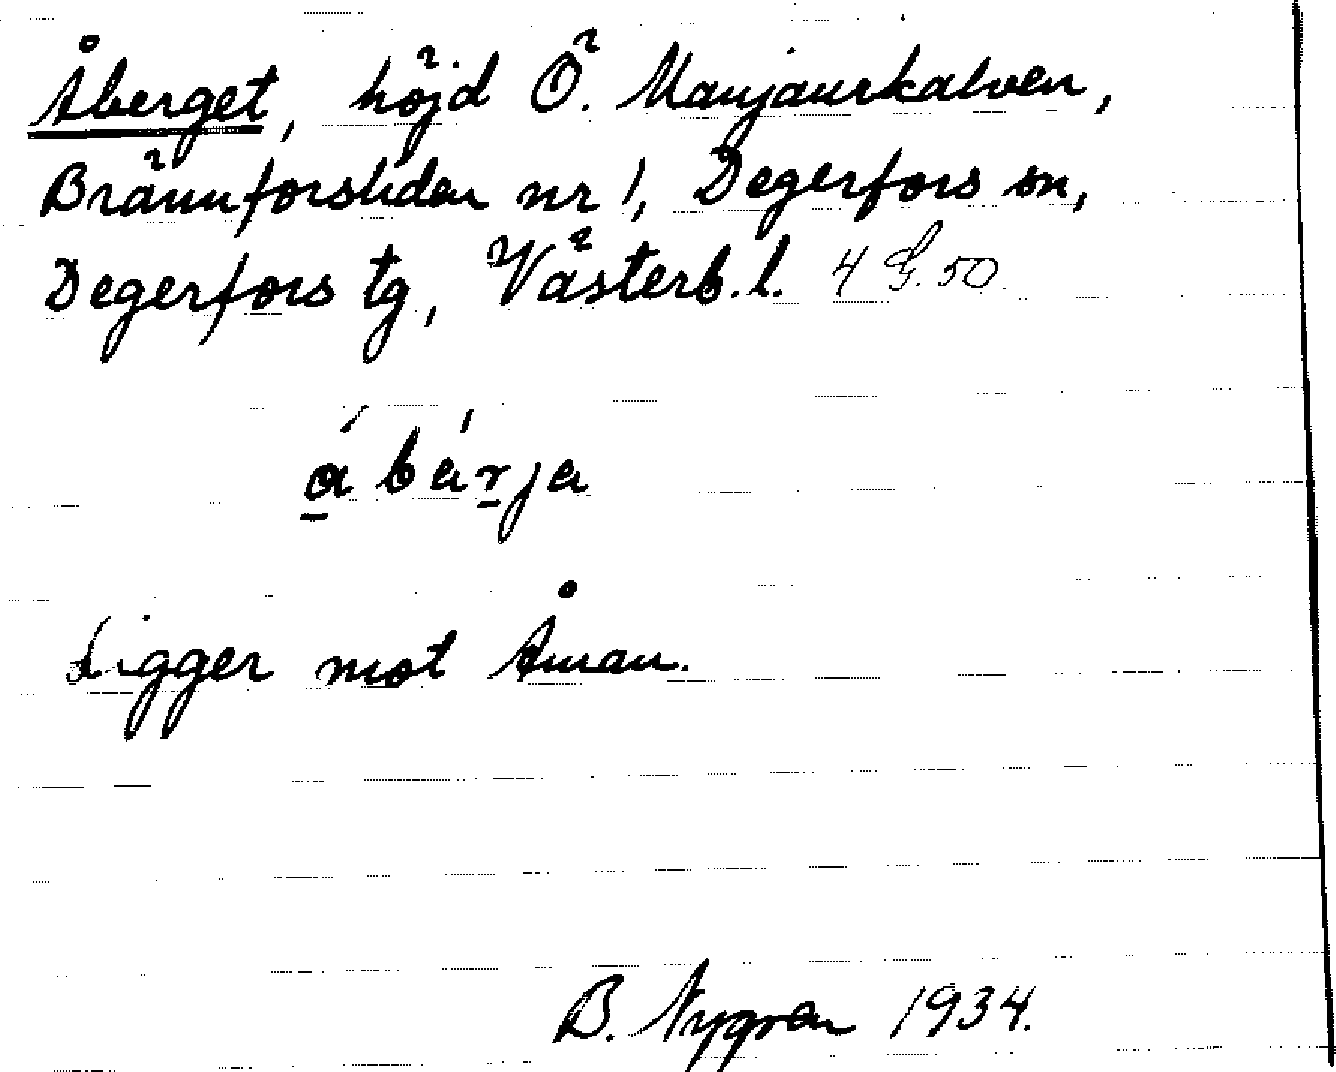 Åberget, höjd Ö. Manjaurkalven,
Brännforsliden nr 1, Degerfors sn,
Degerfors tg, Västerb. l. 4 G. 50
á bárja
Ligger mot Åman.
B. Nygren 1934.